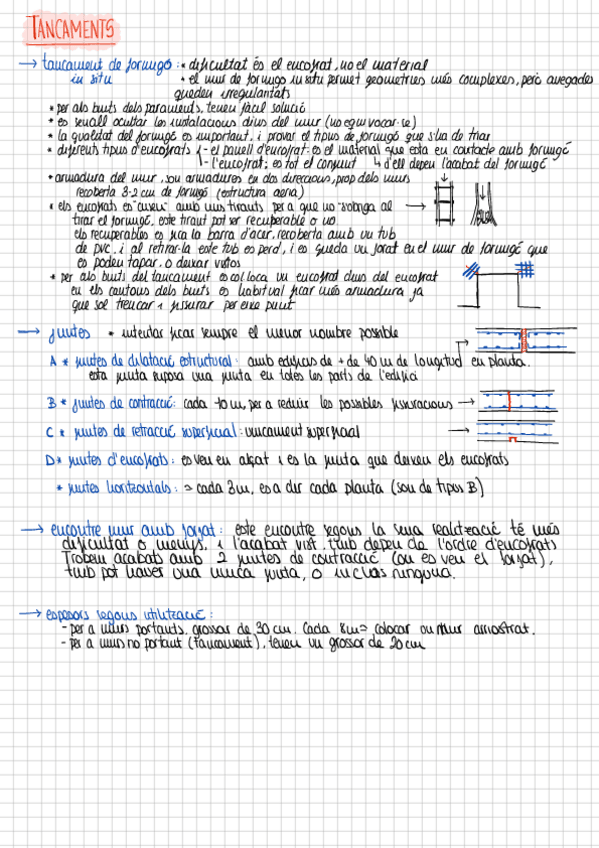 TANCAMENTS
→ tancament de formigó: * dificultat és el encofrat, no el material
in situ * el mur de formigo in situ permet geometries més complexes, però avegades
queden irregularitats
* per als buits dels paraments, tenen fàcil solució
* es senzill ocultar les instalacions dins del mur (no equivocar-se)
* la qualitat del formigó es important, i provar el tipus de formigó que s'ha de triar
* diferents tipus d'encofrats - el panell d'encofrat: es el material que esta en contacte amb formigó
- l'encofrat: es tot el conjunt ↳ d'ell depen l'acabat del formigó
* armadura del mur, sou armadures en dos direccions, prop dels murs
recoberta 3-2 cm de formigó (estructura aeria)
* els encofrats es "cusen" amb uns tirants per a que no "s'obriga al
tirar el formigó, este tirant pot ser recuperable o no.
els recuperables es fica la barra d'acer, recoberta amb un tub
de pvc, i al retirar-la este tub es perd, i es queda un forat en el mur de formigó que
es poden tapar, o deixar vistos
* per als buits del tancament es col·loca un encofrat dins del encofrat
en els cantons dels buits es habitual ficar més armadura ja
que sol trencar i fissurar per eixe punt
→ juntes * intentar ficar sempre el menor nombre possible
A * juntes de dilatació estructural: amb edificis de + de 40 m de longitud en planta.
esta junta suposa una junta en totes les parts de l'edifici
B * juntes de contracció: cada 10 m, per a reduir les possibles fissuracions →
C * juntes de retracció superficial: unicament superficial →
D * juntes d'encofrats: es veu en alçat i es la junta que deixen els encofrats
* juntes horitzontals: = cada 3m, es a dir cada planta (sou de tipus B)
→ encontre mur amb forjat: este encontre segons la seua realització té més
dificultat o menys, i l'acabat vist. tmb depen de l'ordre d'encofrats
Trobem acabats amb 2 juntes de contracció (on es veu el forjat),
tmb pot haver una unica junta, o inclus ninguna.
→ espesors segons utilització:
- per a murs portants, grossor de 30 cm. Cada 8m = colocar un mur arriostrat.
- per a murs no portant (tancament), tenen un grossor de 20 cm